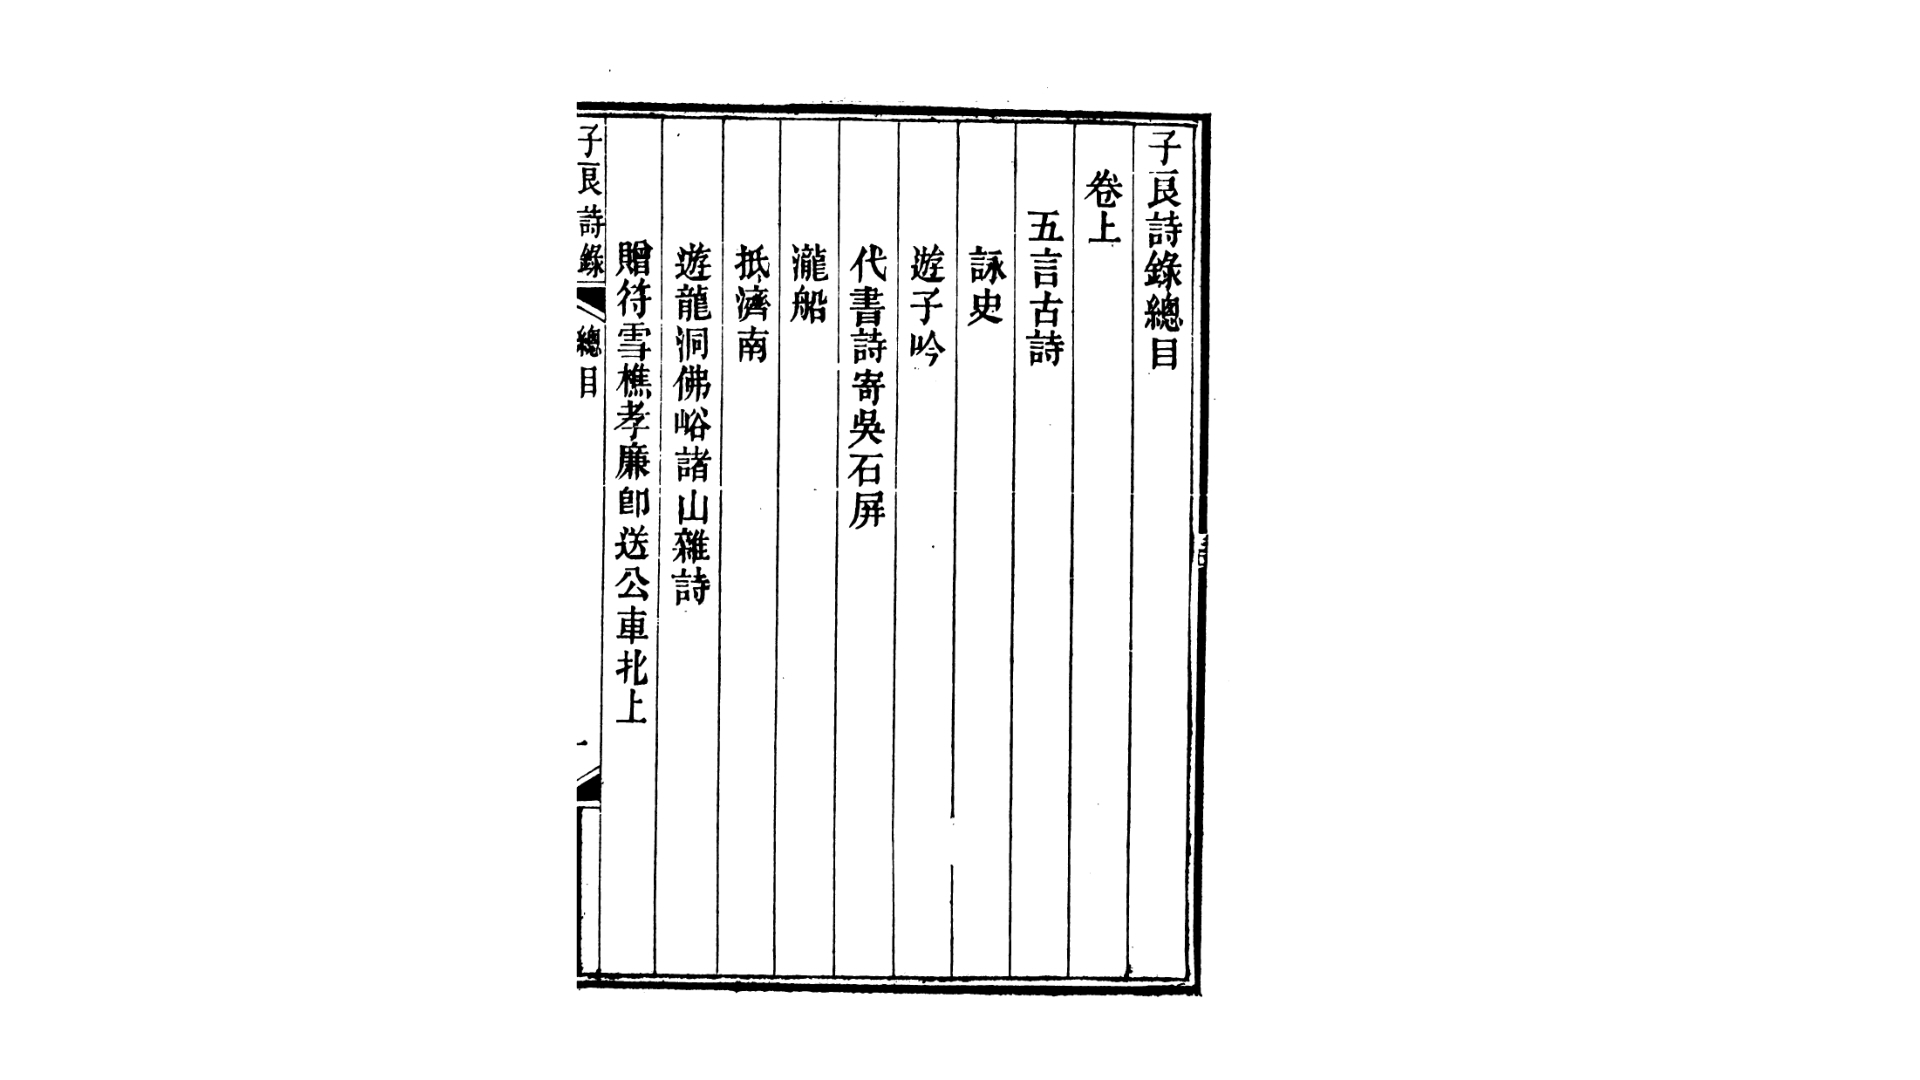 子良詩錄總目
卷上
五言古詩
詠史
遊子吟
代書詩寄吳石屏
瀧船
抵濟南
遊龍洞佛峪諸山雜詩
贈符雪樵孝廉卽送公車北上
子良詩錄
總目
一